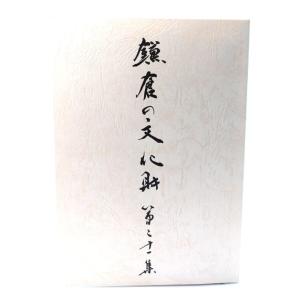 鎌倉の文化財 第二十一集